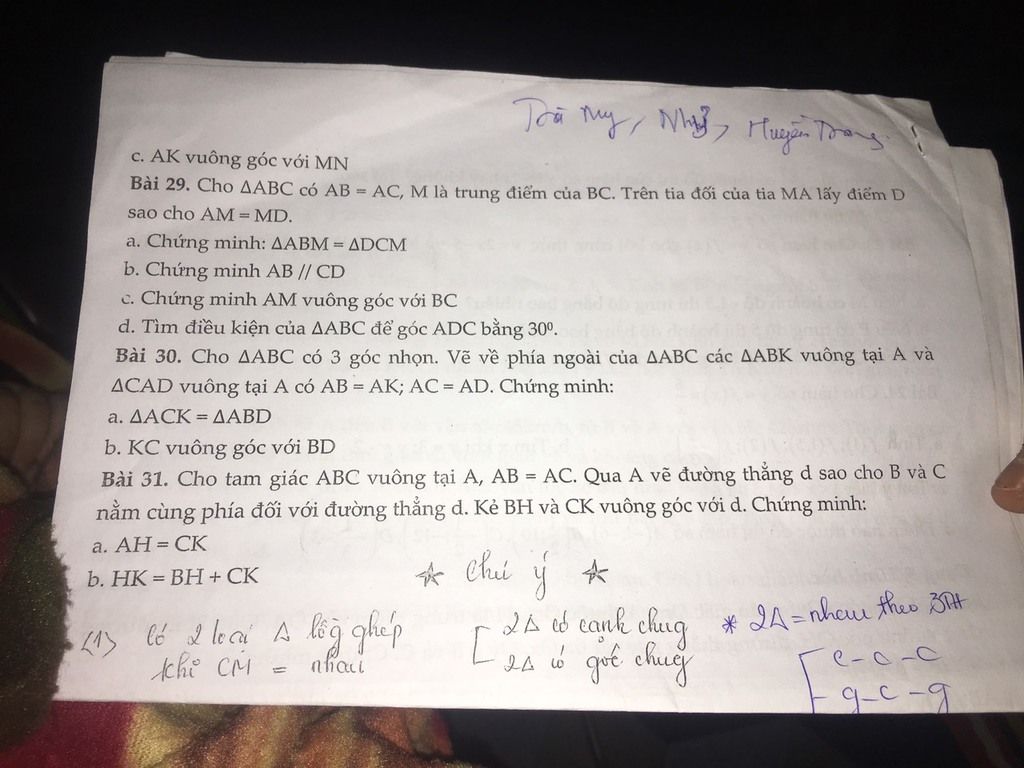 Trà My, Như, Huyền Trang.
c. AK vuông góc với MN
Bài 29. Cho ΔABC có AB = AC, M là trung điểm của BC. Trên tia đối của tia MA lấy điểm D
sao cho AM = MD.
a. Chứng minh: ΔABM = ΔDCM
b. Chứng minh AB // CD
c. Chứng minh AM vuông góc với BC
d. Tìm điều kiện của ΔABC để góc ADC bằng 30⁰.
Bài 30. Cho ΔABC có 3 góc nhọn. Vẽ về phía ngoài của ΔABC các ΔABK vuông tại A và
ΔCAD vuông tại A có AB = AK; AC = AD. Chứng minh:
a. ΔACK = ΔABD
b. KC vuông góc với BD
Bài 31. Cho tam giác ABC vuông tại A, AB = AC. Qua A vẽ đường thẳng d sao cho B và C
nằm cùng phía đối với đường thẳng d. Kẻ BH và CK vuông góc với d. Chứng minh:
a. AH = CK
b. HK = BH + CK
☆ Chú ý ☆
(1) Có 2 loại Δ lồg ghép
khi CM = nhau
2Δ có cạnh chug
2Δ có góc chug
* 2Δ = nhau theo 3TH
c-c-c
g-c-g